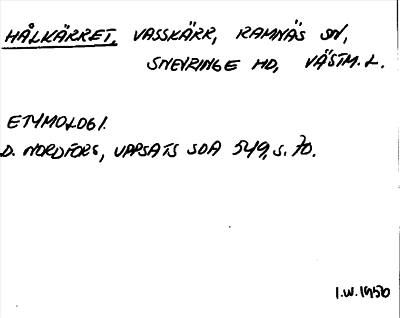 HÅLKÄRRET, VASSKÄRR, RAMNÄS SN,
SNEVRINGE HD, VÄSTM. L.
ETYMOLOGI.
D. NORDFORS, UPPSATS SOA 549, S. 70.
I.W. 1950